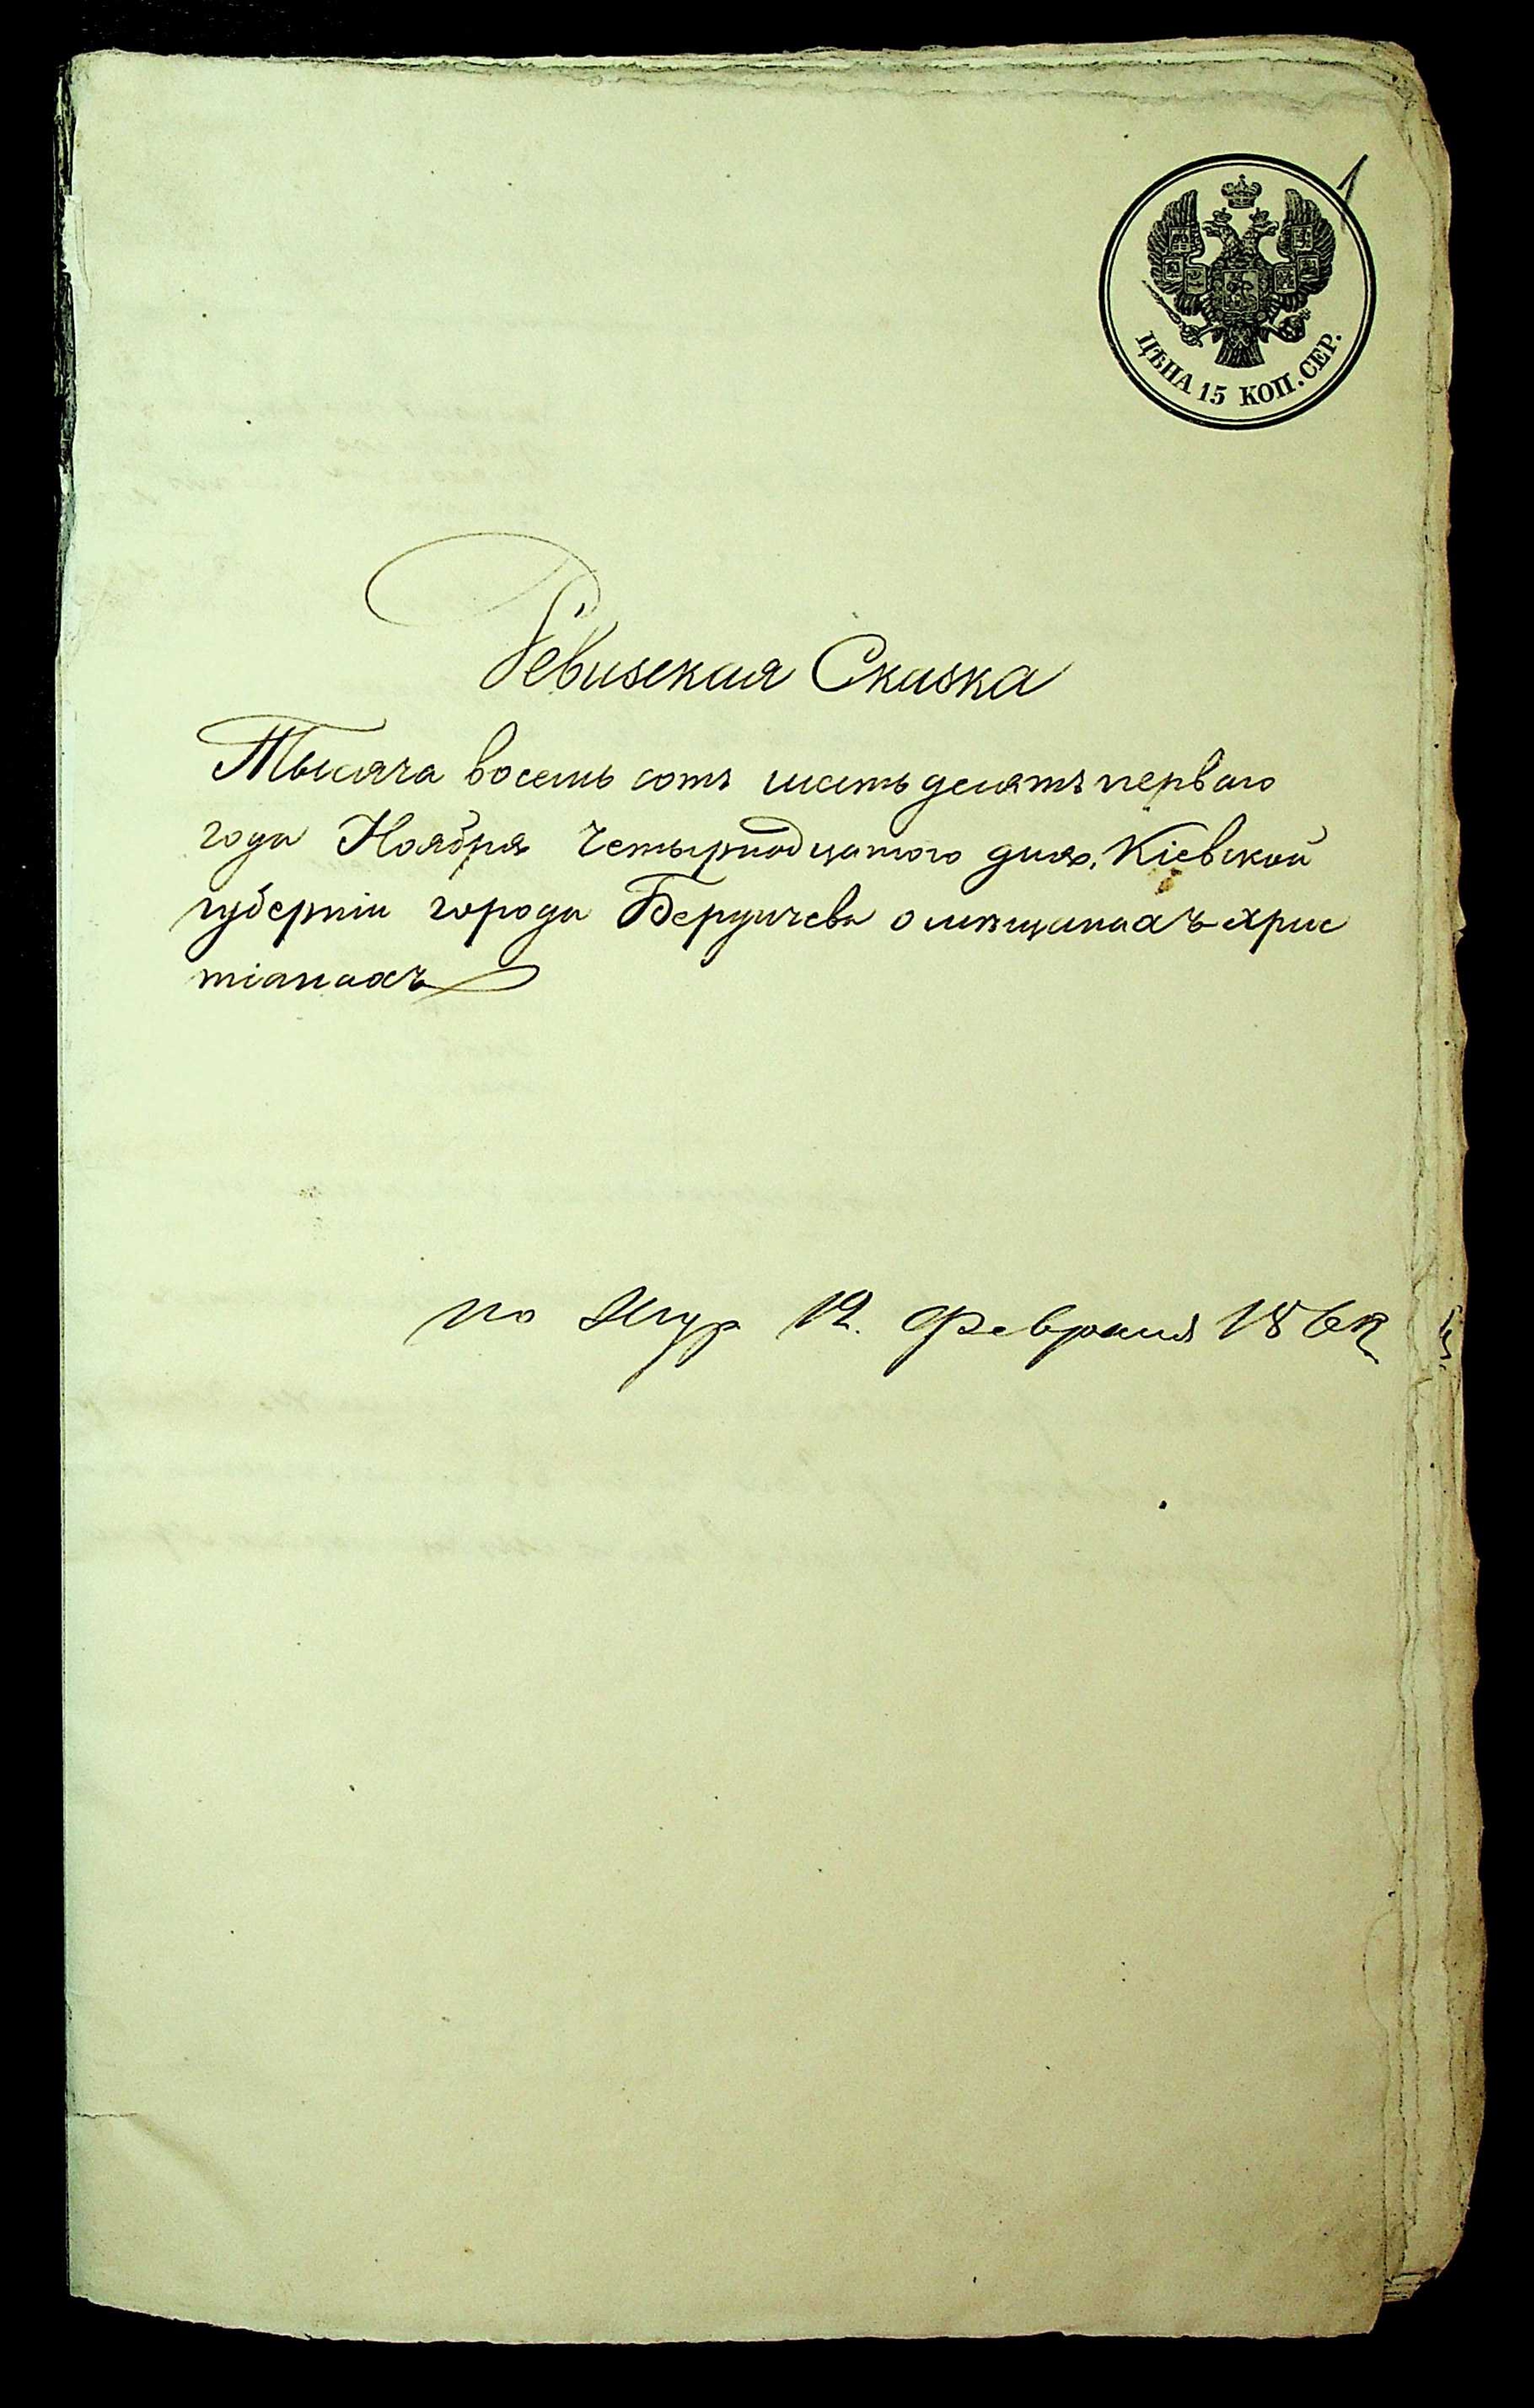 1
ЦѢНА 15 КОП. СЕР.
Ревизская Сказка
Тысяча восемь сотъ шестьдесятъ перваго
года Ноября Четырнадцатого дня, Кіевской
губерніи города Бердичева о мѣщанахъ хрис
тіанахъ
по Жур 12. Февраля 1862